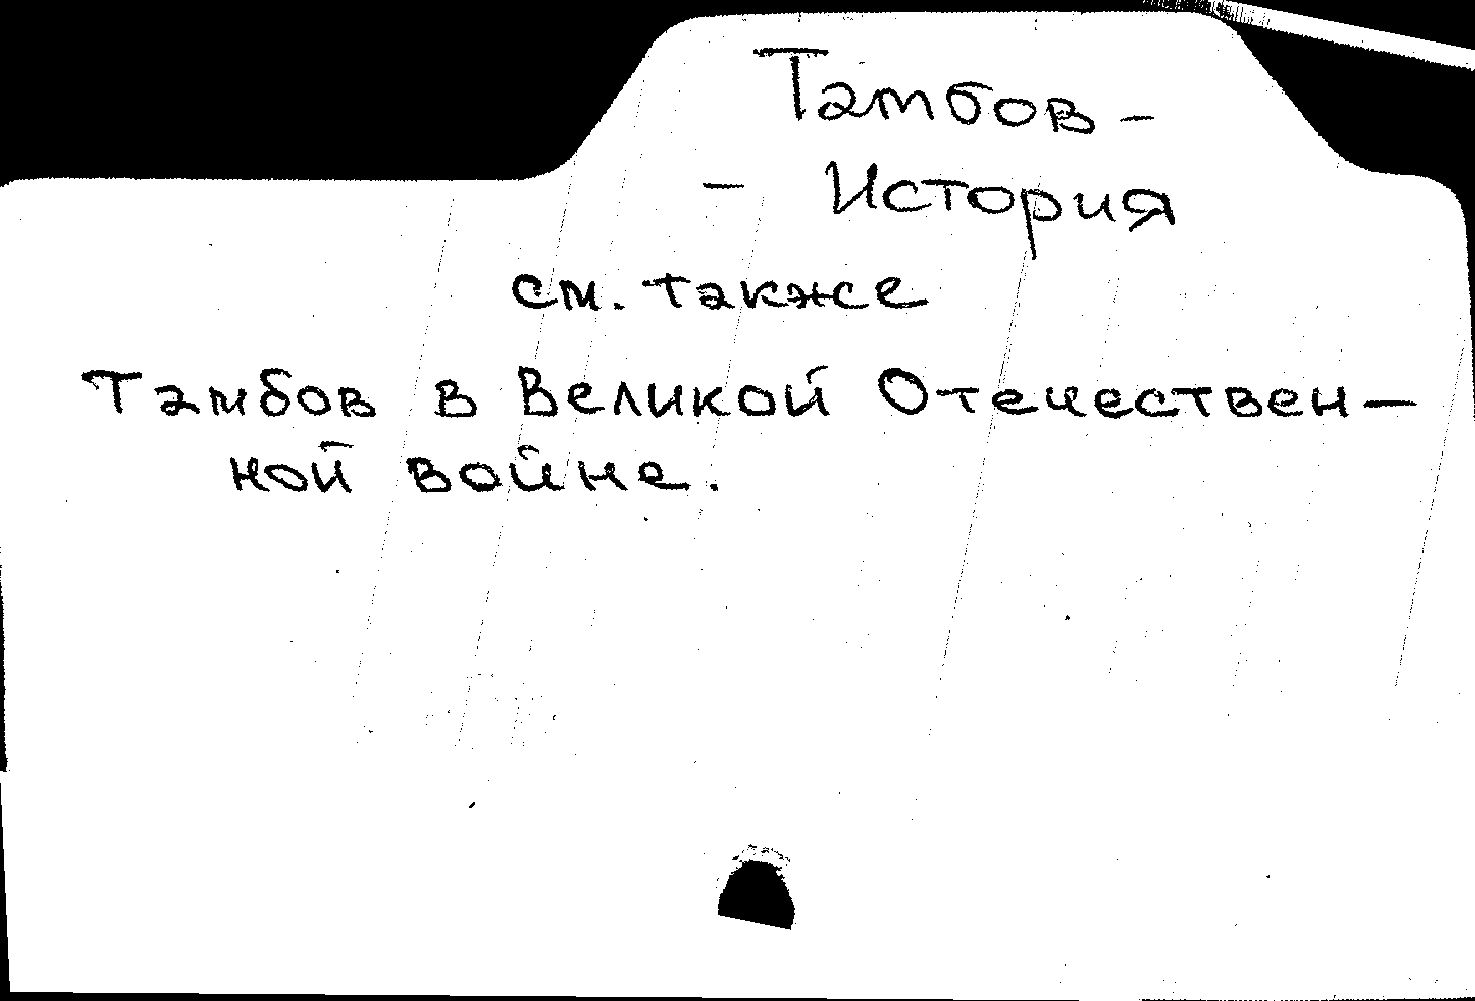 Тамбов -
- История
см. также
Тамбов в Великой Отечествен-
ной войне.